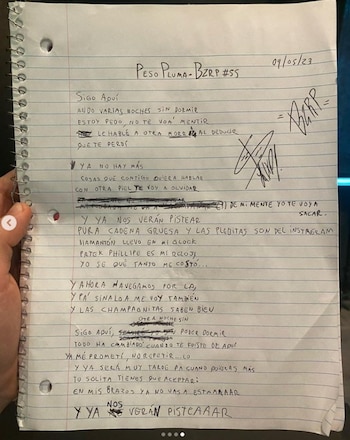 PESO PLUMA - BZRP #55
09/05/23
= BZRP =
SIGO AQUÍ
ANDO VARIAS NOCHES SIN DORMIR
ESTOY PEDO, NO TE VOY A MENTIR
LE HABLÉ A OTRA MORRI AL DEDUCIR
QUE TE PERDÍ
Y YA NO HAY MÁS
COSAS QUE CONTIGO QUIERA HABLAR
CON OTRA PIEL TE VOY A OLVIDAR
DE MI MENTE YO TE VOY A
SACAR.
Y YA NOS VERÁN PISTEAR
PURA CADENA GRUESA Y LAS PLEBITAS SON DEL INSTAGRAM
DIAMANTÓN LLEVO EN MI GLOCK
PATEK PHILLIPE ES MI RELOJ
YO SÉ QUE TANTO ME COSTÓ.
Y AHORA NAVEGAMOS POR LA,
Y PA' SINALOA ME VOY TAMBIÉN
Y LAS CHAMPAÑITAS SABEN BIEN
OTRA NOCHE SIN
SIGO AQUÍ, PODER DORMIR
TODO HA CAMBIADO CUANDO TE FUISTE DE AQUÍ
YA ME PROMETÍ, NO REPETIR..LO
Y YA SERÁ MUY TARDE PA CUANDO QUIERAS MÁS
TU SOLITA TIENES QUE ACEPTAR:
EN MIS BRAZOS YA NO VAS A ESTAAAAAR
Y YA NOS VERÁN PISTEAAAR